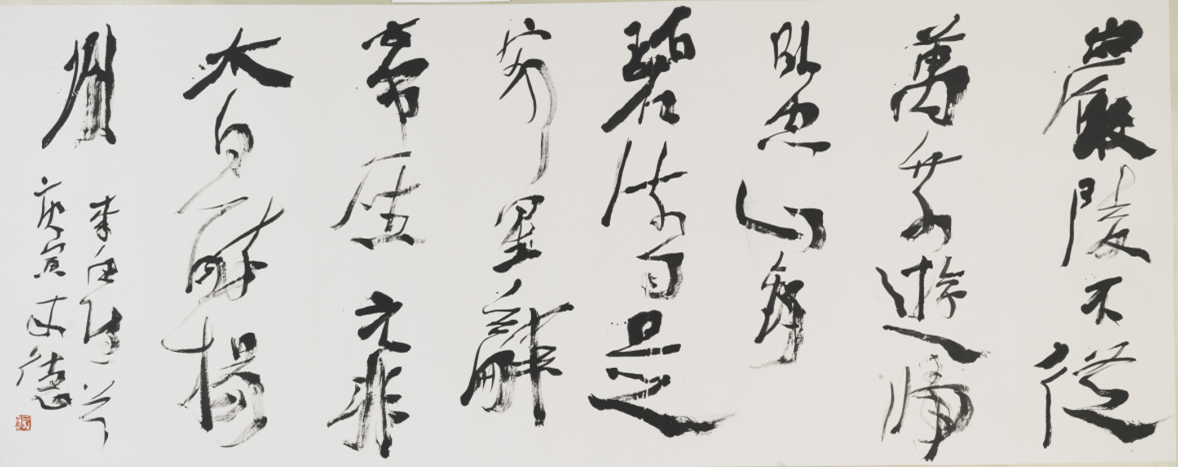 嚴陵不從
萬乘遊歸
臥空山釣
碧流自是
客星辭
帝座元非
太白醉揚
州
李白詩一首
庚寅 德